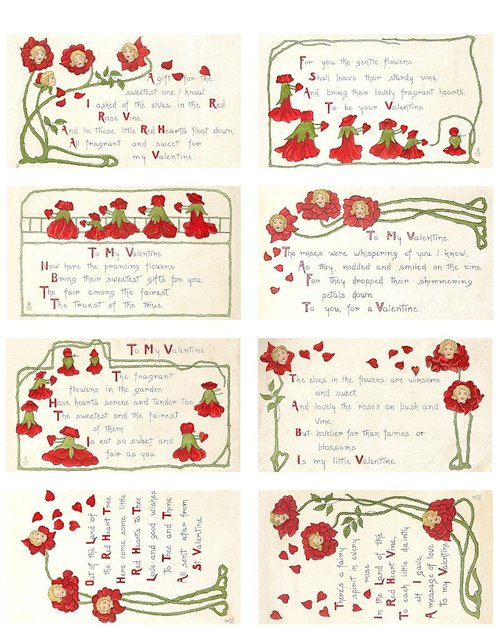 A gift for the
sweetest one I know
I asked of the elves in the Red
Rose Vine,
And lo, these little Red Hearts float down,
All fragrant and sweet for
my Valentine.
For you the gentle flowers
Shall leave their sturdy vine,
And bring their lovely fragrant hearts,
To be your Valentine
To My Valentine
Now here the prancing flowers
Bring their sweetest gifts for you,
The fair among the fairest
The truest of the true.
To My Valentine
The roses were whispering of you I know,
As they nodded and smiled on the vine,
For they dropped their shimmering
petals down
To you, for a Valentine.
To My Valentine
The fragrant
flowers in the garden
Have hearts serene and tender too,
The sweetest and the fairest
of them
Is not so sweet and
fair as you.
The elves in the flowers are winsome
and sweet,
And lovely the roses on bush and
vine,
But lovelier far than fairies or
blossoms
Is my little Valentine.
Out of the Land of
the Red Heart Tree
Here come some little
Red Hearts to Thee
Love and good wishes
To Thee and Thine
All sent afar from
St Valentine
There's a fairy
spirit in every
rose
In the Land of the
Red Heart Vine,
To each little dainty
elf I gave,
A message of love
to my Valentine.